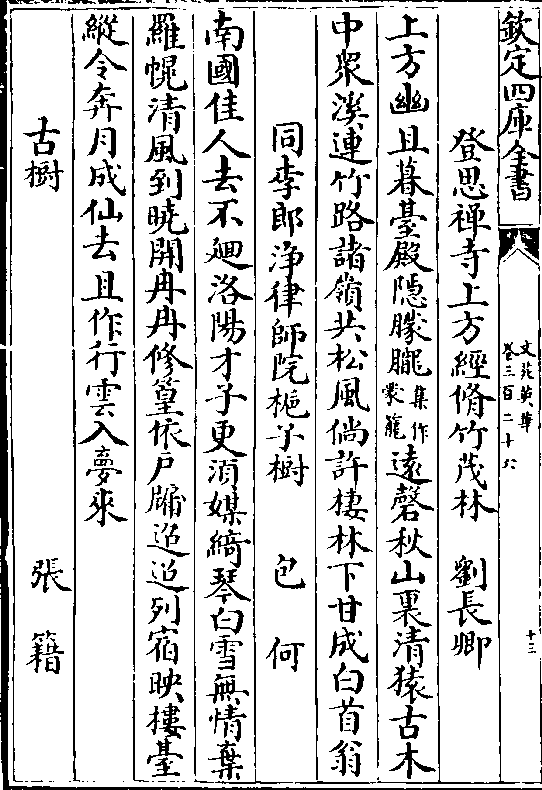 欽定四庫全書
文苑英華
卷三百二十六
十三
登思禪寺上方經脩竹茂林 劉長卿
上方幽且暮臺殿隱朦朧集作蒙籠遠磬秋山裏清猿古木
中衆溪連竹路諸嶺共松風倘許棲林下甘成白首翁
同李郎浄律師院梔子樹 包何
南國佳人去不廻洛陽才子更湏媒綺琴白雪無情棄
羅幌清風到曉開冉冉修篁依戶牖迢迢列宿映樓臺
縱令奔月成仙去且作行雲入夢來
古樹 張籍